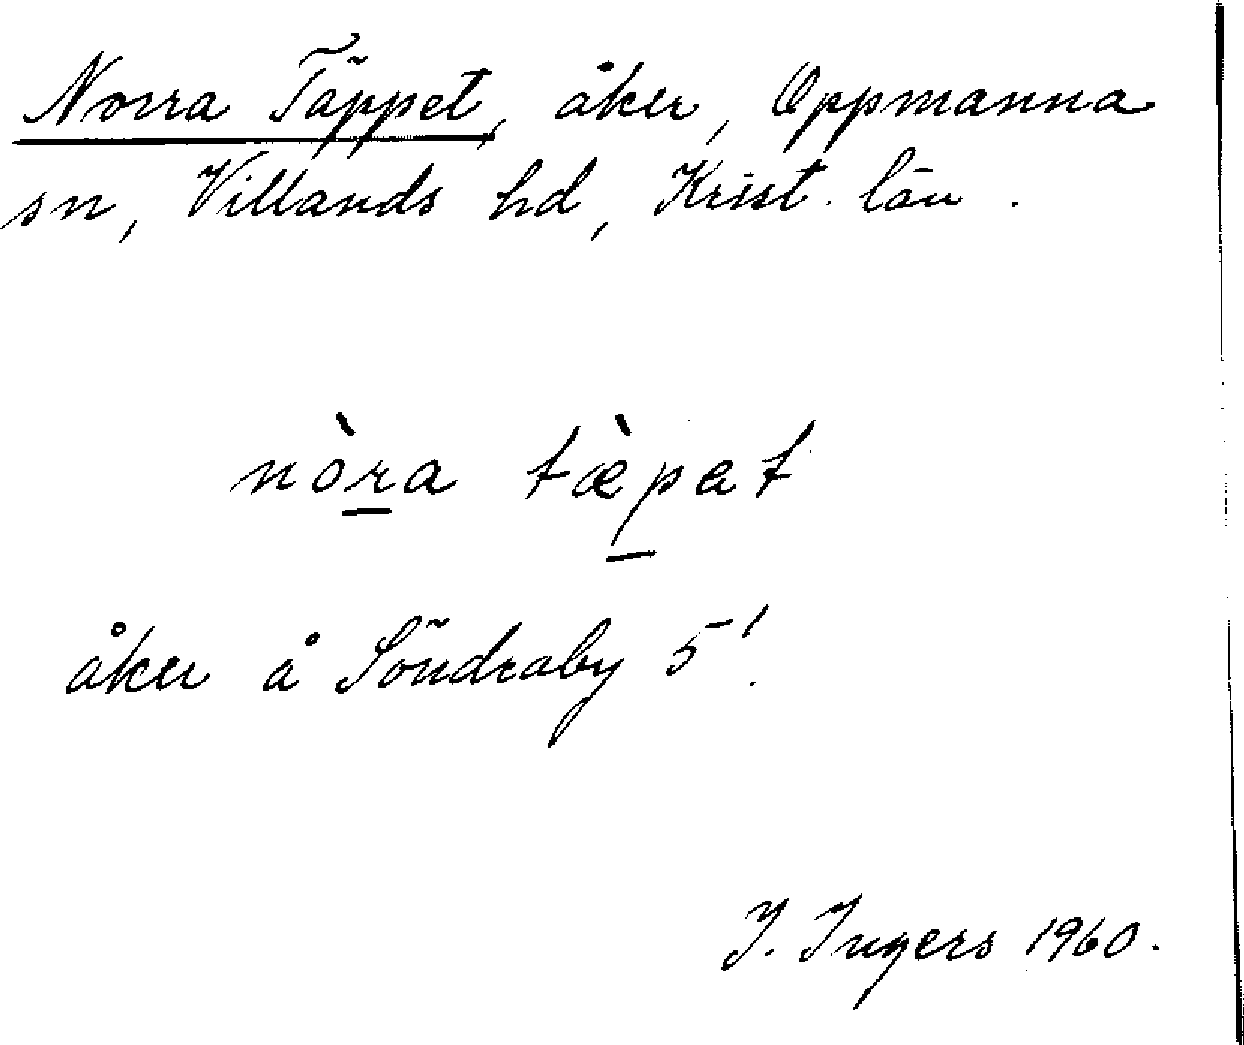 Norra Täppet, åker, Oppmanna
sn, Villands hd, Krist. län.
nòra tæ̀pat
åker å Söndraby 5¹.
I. Ingers 1960.